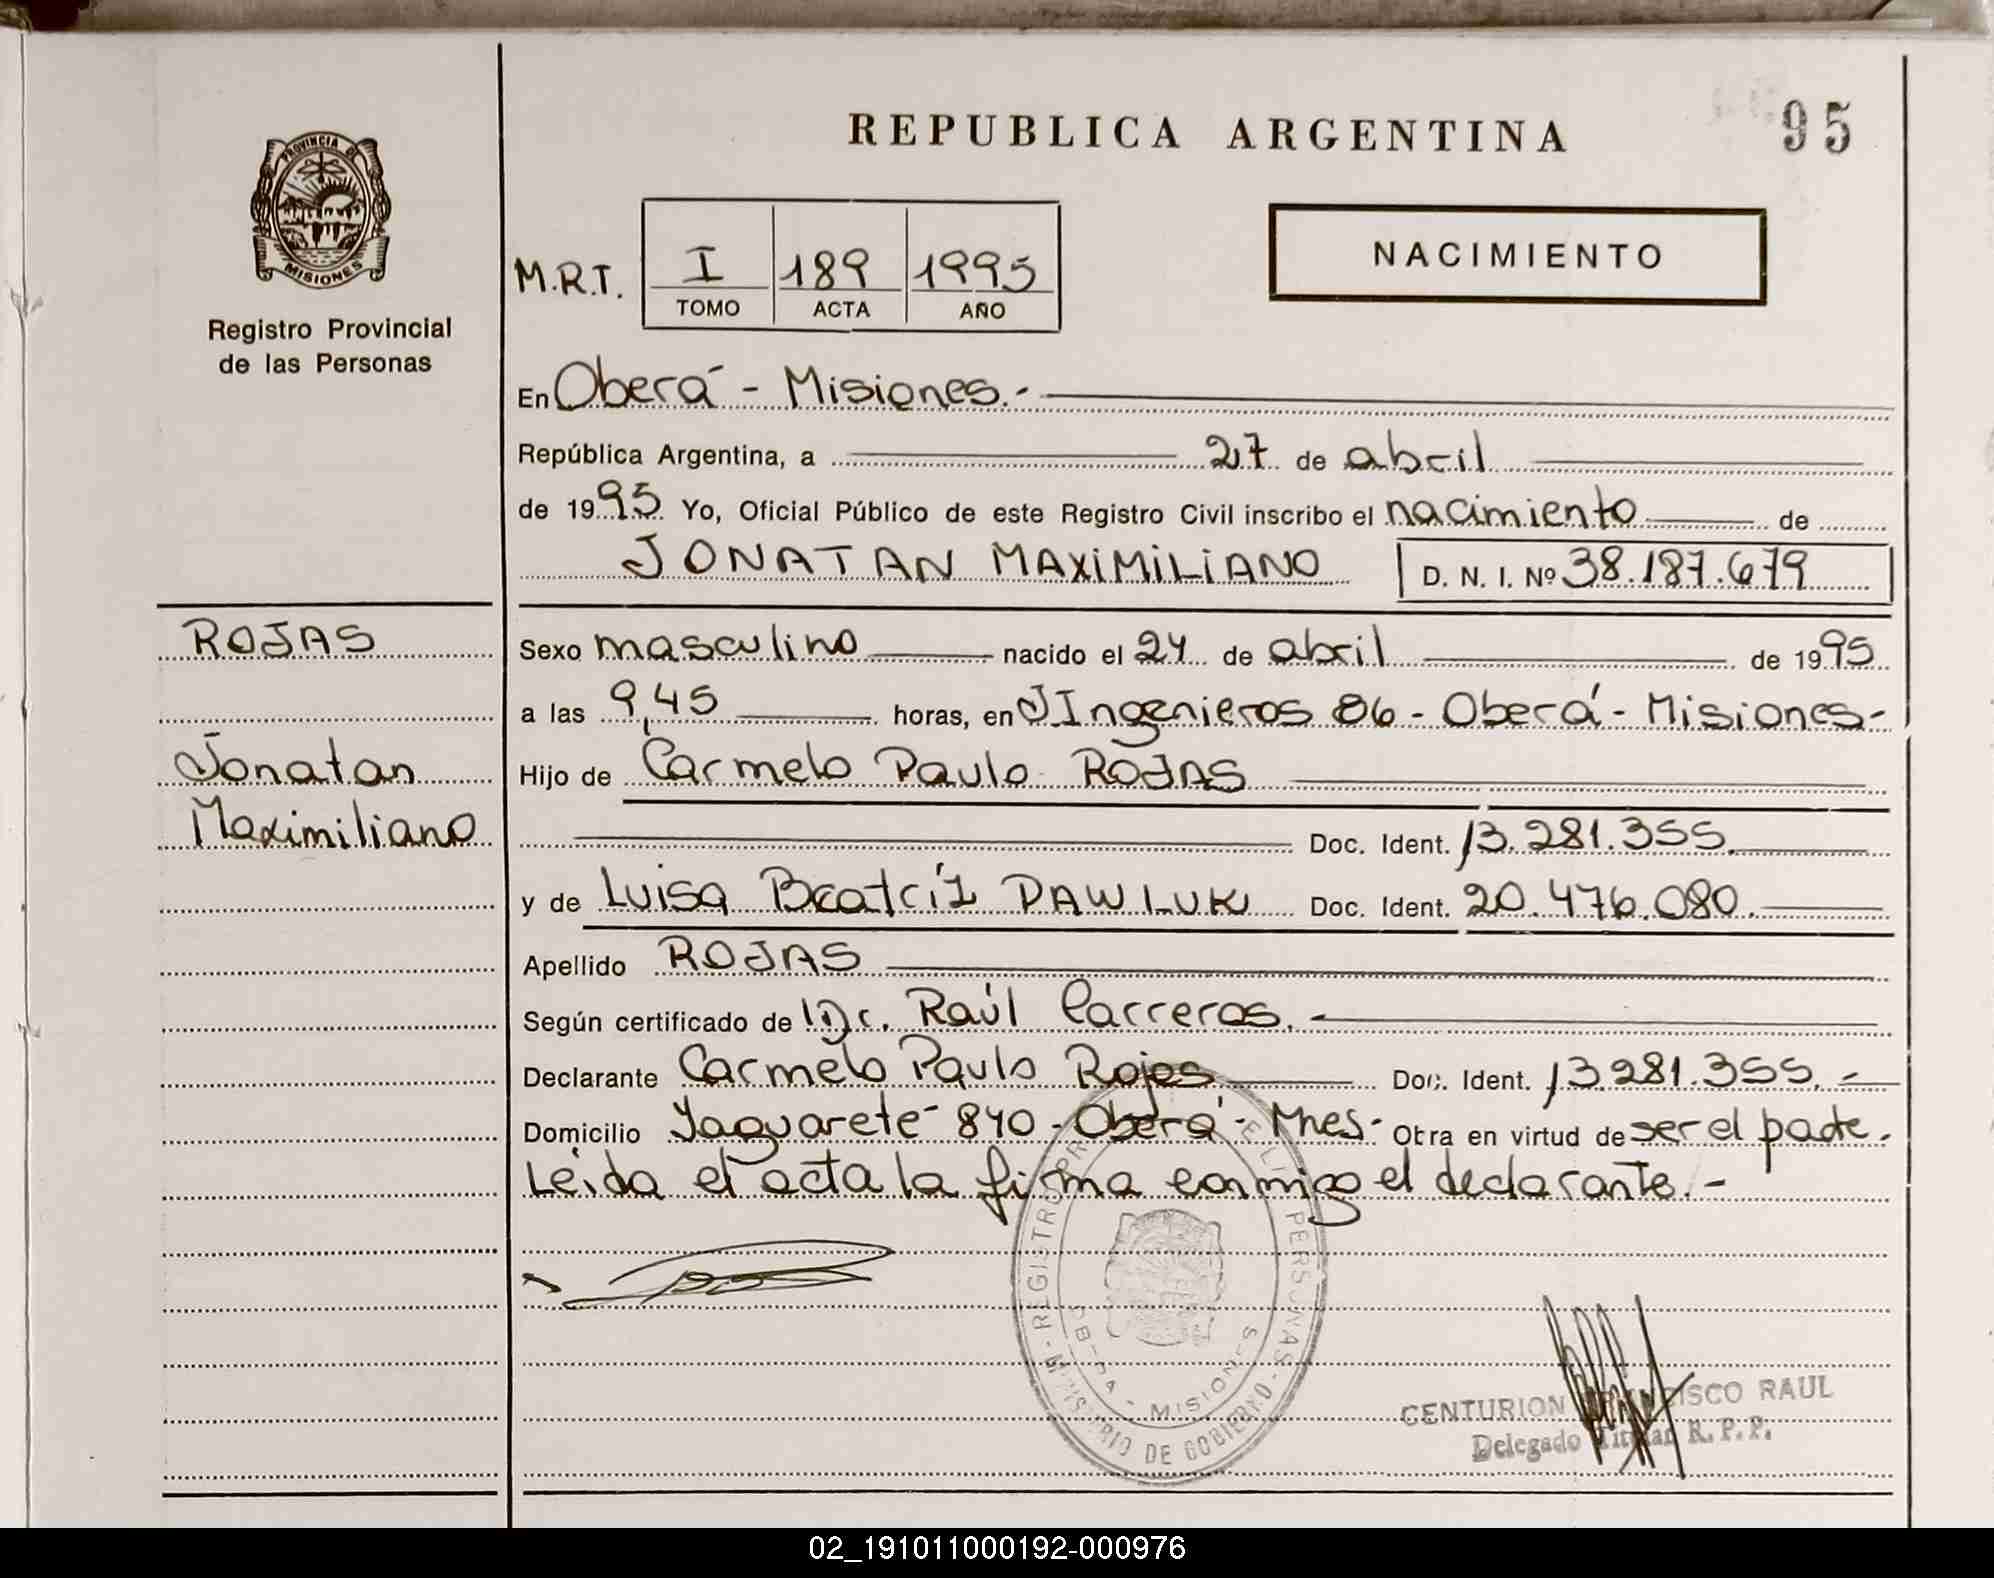 REPUBLICA ARGENTINA
95
PROVINCIA DE
MISIONES
Registro Provincial
de las Personas
M.R.T.
I 189 1995
TOMO ACTA AÑO
NACIMIENTO
En Oberá - Misiones.-
República Argentina, a 27 de abril
de 1995 Yo, Oficial Público de este Registro Civil inscribo el nacimiento de
JONATAN MAXIMILIANO D. N. I. Nº 38.187.679
ROJAS
Jonatan
Maximiliano
Sexo masculino nacido el 24 de abril de 1995
a las 9,45 horas, en J Ingenieros 86 - Oberá - Misiones-
Hijo de Carmelo Paulo ROJAS
Doc. Ident. 13.281.355.
y de Luisa Beatríz PAWLUK Doc. Ident. 20.476.080.
Apellido ROJAS
Según certificado de Dr. Raúl Carreros.-
Declarante Carmelo Paulo Rojas Doc. Ident. 13.281.355.-
Domicilio Yaguarete 840 - Oberá - Mnes- Obra en virtud de ser el padre.
Leida el acta la firma conmigo el declarante.-
REGISTRO PERSONAS - MINISTERIO DE GOBIERNO
OBERA - MISIONES
CENTURION FRANCISCO RAUL
Delegado Titular R. P. P.
02_191011000192-000976